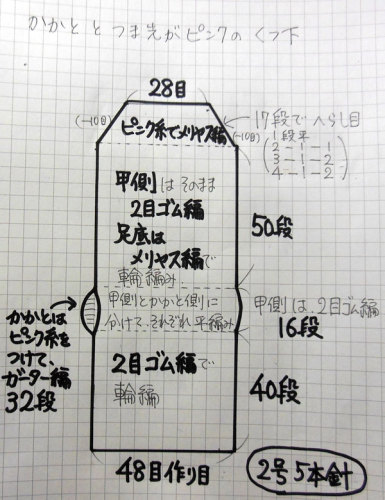 かかととつま先がピンクのくつ下
28目
(-10目)
ピンク糸でメリヤス編
(-10目)
17段でへらし目
1段平
2-1-1
3-1-2
4-1-2
甲側はそのまま
2目ゴム編
足底は
メリヤス編で
輪編み
50段
甲側とかかと側に
分けて、それぞれ平編み
甲側は、2目ゴム編
16段
かかとは
ピンク糸を
つけて、
ガーター編
32段
2目ゴム編で
輪編
40段
48目作り目
2号5本針